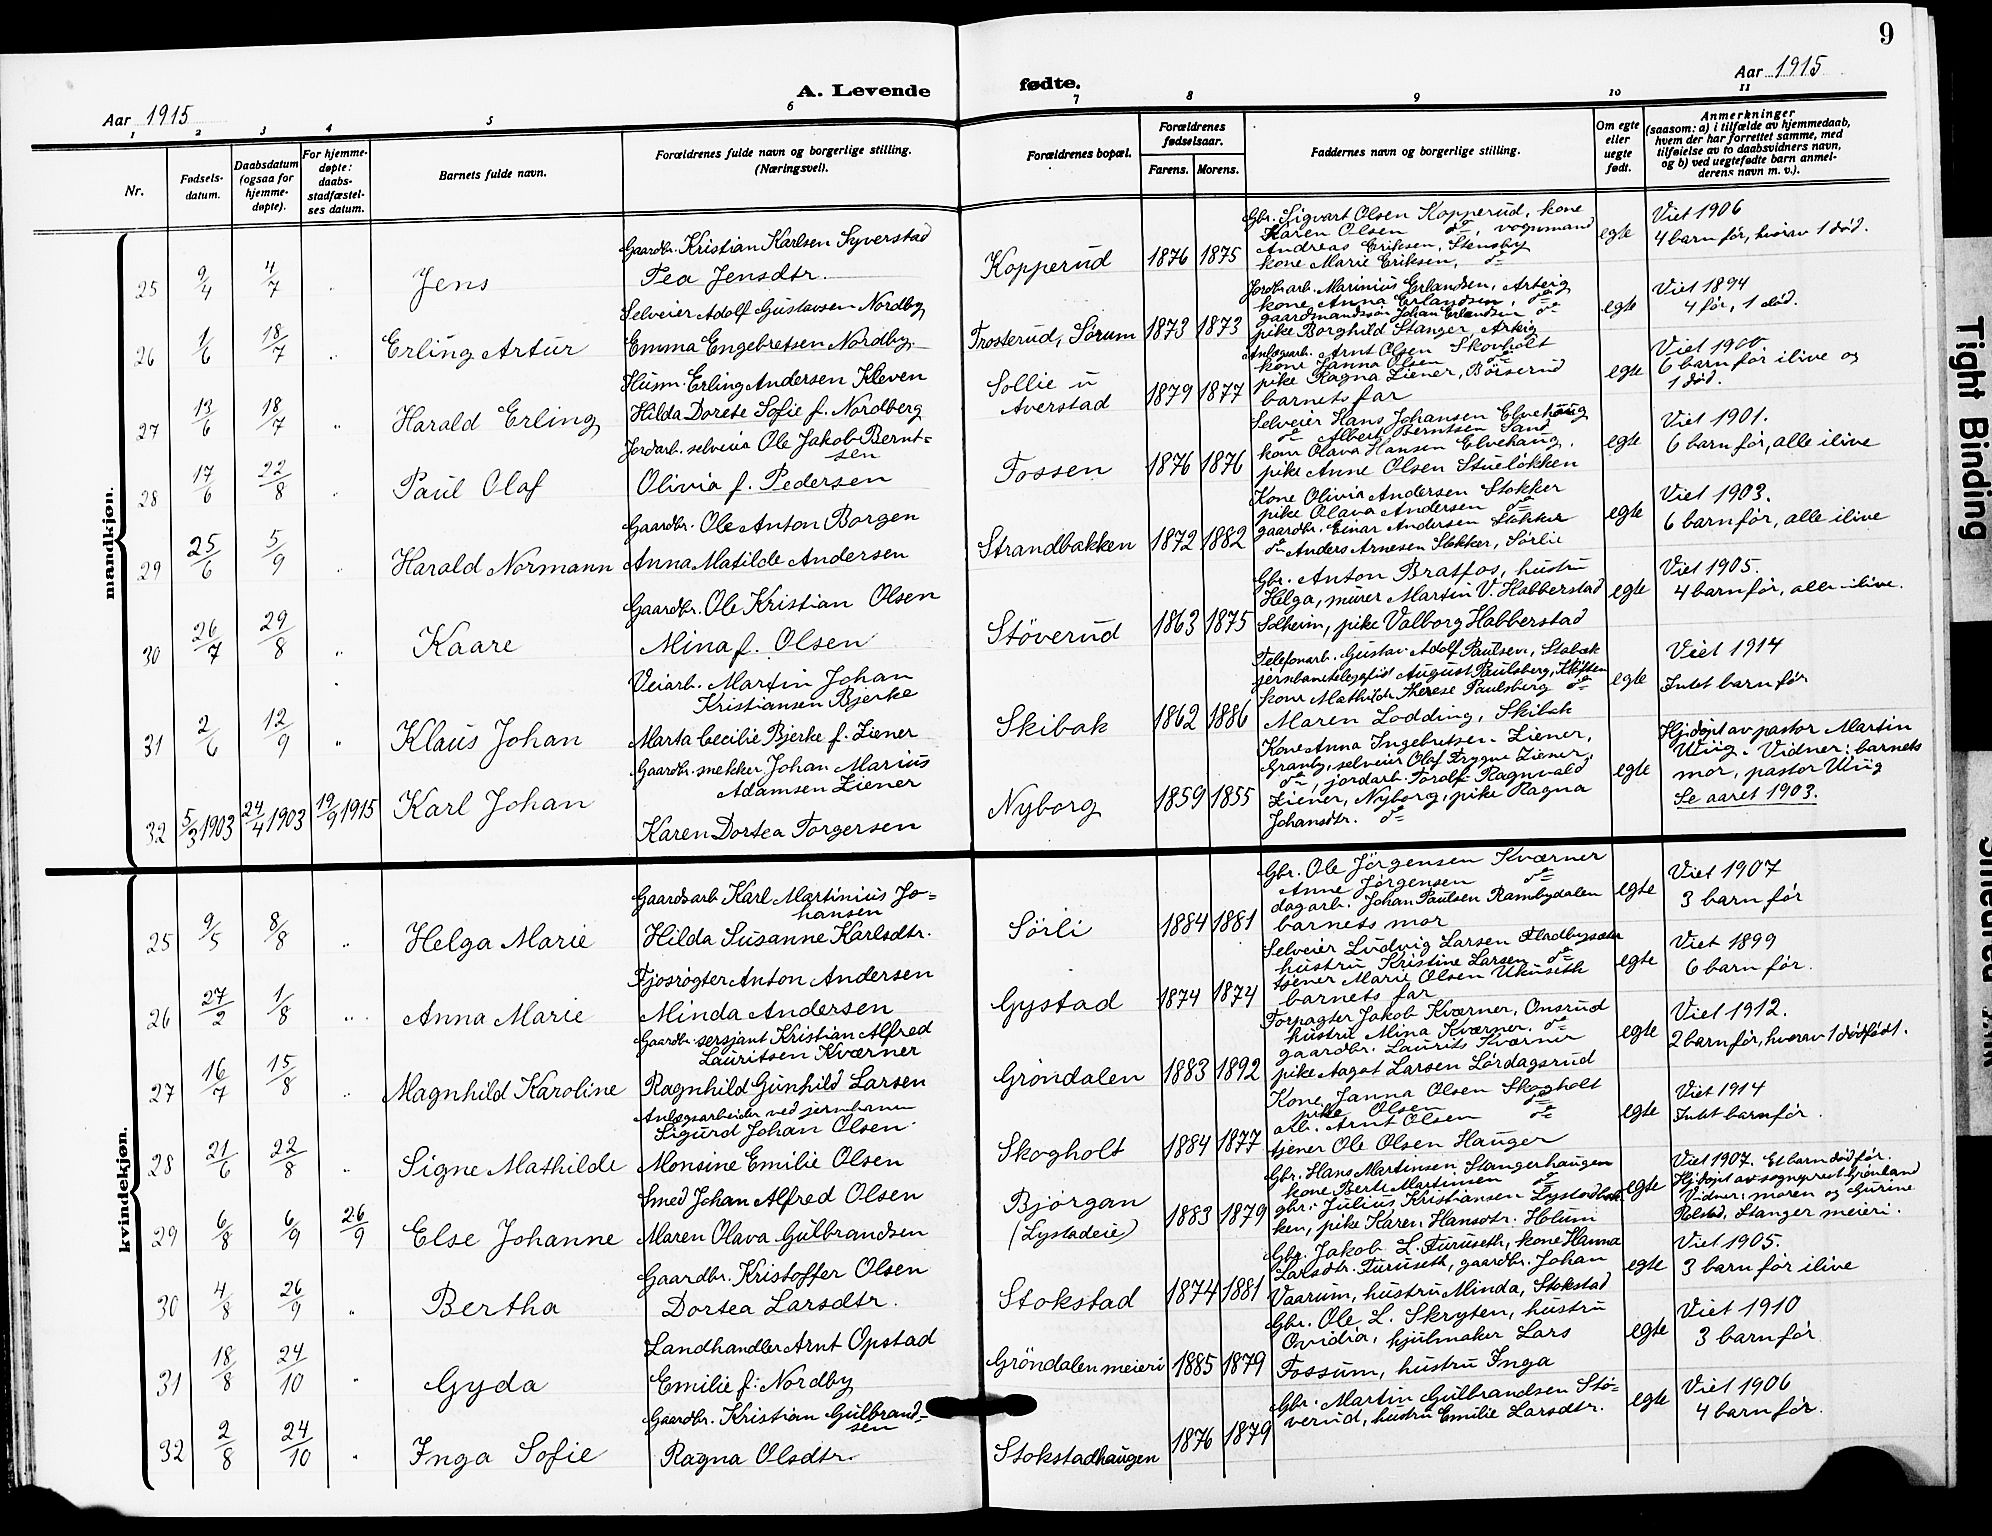 9
Aar 1915
A. Levende fødte.
Aar 1915
1 2 3 4 5 6 7 8 9 10 11
Nr.
Fødsels-
datum.
Daabsdatum
(ogsaa for
hjemme-
døpte).
For hjemme-
døpte:
daabs-
stadfæstel-
ses datum.
Barnets fulde navn.
Forældrenes fulde navn og borgerlige stilling.
(Næringsvei).
Forældrenes bopæl.
Forældrenes
fødselsaar.
Farens. Morens.
Faddernes navn og borgerlige stilling.
Om egte
eller
uegte
født.
Anmerkninger
(saasom: a) i tilfælde av hjemmedaab,
hvem der har forrettet samme, med
tilføielse av to daabsvidners navn,
og b) ved uegtefødte barn anmel-
derens navn m. v.).
mandkjøn.
25 9/4 4/7 " Jens
Gaardbr. Kristian Karlsen Syverstad
Tea Jensdtr.
Kopperud 1876 1875
Gbr. Sigvart Olsen Kopperud, kone
Karen Olsen do, vognmand
Andreas Eriksen, Stensby
kone Marie Eriksen, do
egte
Viet 1906
4 barn før, hvorav 1 død.
26 1/6 18/7 " Erling Artur
Selveier Adolf Gustavsen Nordby
Emma Engebretsen Nordby.
Frosterud, Sørum 1873 1873
Jordbr.arb. Marinius Erlandsen, Arteig
kone Anna Erlandsen, do
gaardmandssøn Johan Erlandsen do
pike Borghild Stanger, Arteig
egte
Viet 1894
4 før, 1 død.
27 13/6 18/7 " Harald Erling
Husm. Erling Andersen Kleven
Hilda Dorete Sofie f. Nordberg
Sollie u
Averstad 1879 1877
Anlægsarb. Arnt Olsen Skovholt
kone Janna Olsen do
pike Ragna Liener, Böiserud
barnets far
egte
Viet 1900.
6 barn før ilive og
1 død.
28 17/6 22/8 " Paul Olaf
Jordarb. selveier Ole Jakob Bernt=
sen
Olivia f. Pedersen
Fossen 1876 1876
Selveier Hans Johansen Elvehaug
do Albert Berntsen Sand
kone Olava Hansen Elvehaug,
pike Anne Olsen Stueløkken
egte
Viet 1901.
6 barn før, alle ilive
29 25/6 5/9 " Harald Normann
Gaardbr. Ole Anton Borgen
Anna Matilde Andersen
Strandbakken 1872 1882
Kone Olivia Andersen Stokker
pike Olava Andersen do
gaardbr. Einar Andersen Stokker
do Anders Arnesen Stokker, Sørlie
egte
Viet 1903.
6 barn før, alle ilive
30 26/7 29/8 " Kaare
Gaardbr. Ole Kristian Olsen
Mina f. Olsen
Støverud 1863 1875
Gbr. Anton Bratfos, hustru
Helga, murer Martin V. Habberstad
Solheim, pike Valborg Habberstad
egte
Viet 1905.
4 barn før, alle ilive.
31 2/6 12/9 " Klaus Johan
Veiarb. Martin Johan
Kristiansen Bjerke
Marta Cecilie Bjerke f. Liener
Skibak 1862 1886
Telefonarb. Gustav Adolf Paulsen, Stabæk
jernbanetelegrafist August Paulsberg, Kløften
kone Mathilde Therese Paulsberg do
Maren Lodding, Skibak
egte
Viet 1914
Intet barn før
32 5/3 1903 24/4 1903 19/9 1915 Karl Johan
Gaardbr. snekker Johan Marius
Adamsen Liener
Karen Dortea Torgersen
Nyborg 1859 1855
Kone Anna Ingebretsen Liener,
Granby, selveier Olaf Trygve Liener,
do, jordarb. Torolf Ragnvald
Liener, Nyborg, pike Ragna
Johansdtr. do
egte
Hj.døpt av pastor Martin
Wiig. Vidner: barnets
mor, pastor Wiig
Se aaret 1903.
kvindekjøn.
25 9/5 8/8 " Helga Marie
Gaardsarb Karl Martinius Jo=
hansen
Hilda Susanne Karlsdtr.
Sørli 1884 1881
Gbr. Ole Jörgensen Kværner
Anne Jørgensen do
dagarb. Johan Paulsen Rambydalen
barnets mor
egte
Viet 1907
3 barn før
26 27/2 1/8 " Anna Marie
Fjøsrøgter Anton Andersen
Minda Andersen
Gystad 1874 1874
Selveier Ludvig Larsen Fladbysæter
hustru Kristine Larsen do
tjener Marie Olsen Ukuseth
barnets far
egte
Viet 1899
6 barn før.
27 16/7 15/8 " Magnhild Karoline
Gaardbr. sersjant Kristian Alfred
Lauritsen Kværner
Ragnhild Gunhild Larsen
Grøndalen 1883 1892
Forpagter Jakob Kværner, Onsrud
hustru Mina Kværner, do
gaardbr. Laurits Kværner
pike Aagot Larsen Lørdagsrud
egte
Viet 1912.
2 barn før, hvorav 1 dødfødt.
28 21/6 22/8 " Signe Mathilde
Anlægsarbeider ved jernbanen
Sigurd Johan Olsen
Monsine Emilie Olsen
Skogholt 1884 1877
Kone Janna Olsen Skogholt
pike Olsen do
arb. Arnt Olsen do
tjener Ole Olsen Hauger
egte
Viet 1914
Intet barn før.
29 6/8 6/9 26/9 Else Johanne
Smed Johan Alfred Olsen
Maren Olava Gulbrandsen
Bjørgan
(Lystadeie) 1883 1879
Gbr. Hans Martinsen Stangerhaugen
kone Berte Martinsen do
gbr. Julius Kristiansen Lystadbak-
ken, pike Karen Hansdtr. Holum
egte
Viet 1907. Et barn død før.
Hj.døpt av sogneprest Grønland
Vidner: moren og Gurine
Rolstad, Stanger meieri.
30 4/8 26/9 " Bertha
Gaardbr. Kristoffer Olsen
Dortea Larsdtr.
Stokstad 1874 1881
Gbr. Jakob L. Furuseth, kone Hanna
Larsdtr. Furuseth, gaardbr. Johan
Vaarum, hustru Minda, Stokstad
egte
Viet 1905.
3 barn før ilive
31 18/8 24/10 " Gyda
Landhandler Arnt Opstad
Emilie f. Nordby
Grøndalen meieri 1885 1879
Gbr. Ole L. Skryten, hustru
Ovidia, hjulmaker Lars
Fossum, hustru Inga
egte
Viet 1910
3 barn før
32 2/8 24/10 " Inga Sofie
Gaardbr. Kristian Gulbrand=
sen
Ragna Olsdtr.
Stokstadhaugen 1876 1879
Gbr. Martin Gulbrandsen Stø=
verud, hustru Emilie Larsdtr.
egte
Viet 1906
4 barn før.
Tight Binding